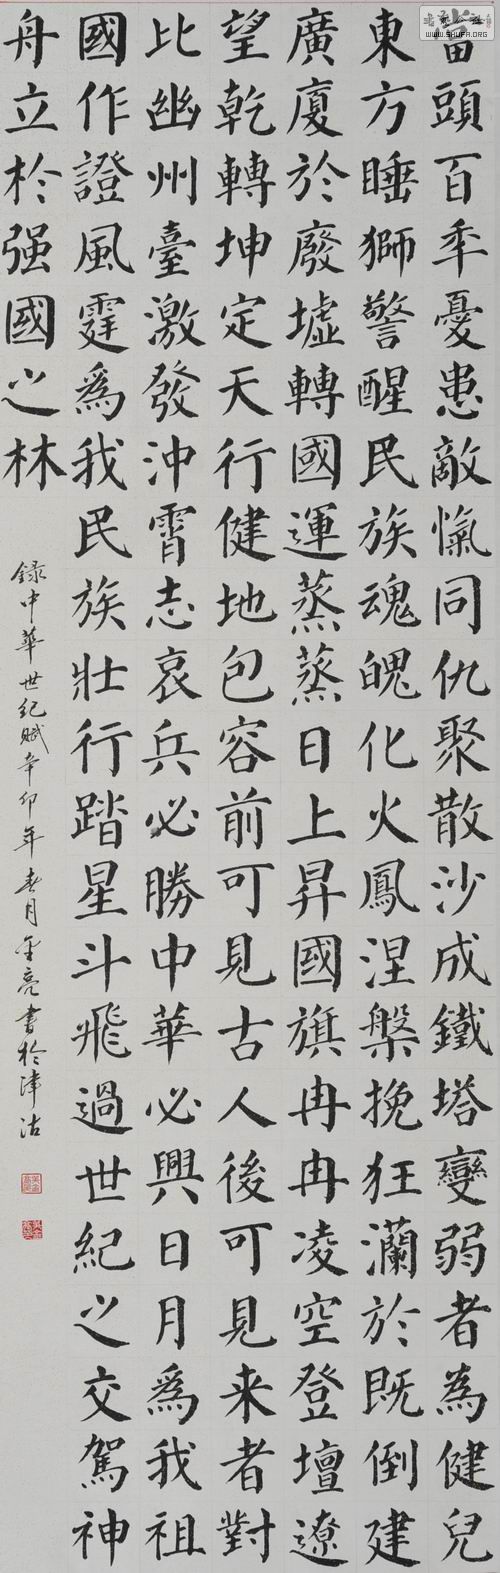 當頭百年憂患敵愾同仇聚散沙成鐵塔變弱者為健兒
東方睡獅警醒民族魂魄化火鳳涅槃挽狂瀾於既倒建
廣廈於廢墟轉國運蒸蒸日上昇國旗冉冉凌空登壇遼
望乾轉坤定天行健地包容前可見古人後可見来者對
比幽州臺激發沖霄志哀兵必勝中華必興日月爲我祖
國作證風霆爲我民族壯行踏星斗飛過世紀之交駕神
舟立於强國之林
錄中華世紀賦辛卯年春月金亮書於津沽
WWW.SHUFA.ORG